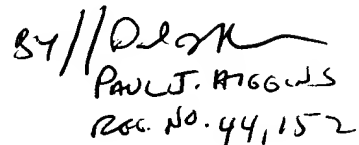 BY //
PAUL J. HIGGINS
REG. NO. 44,152